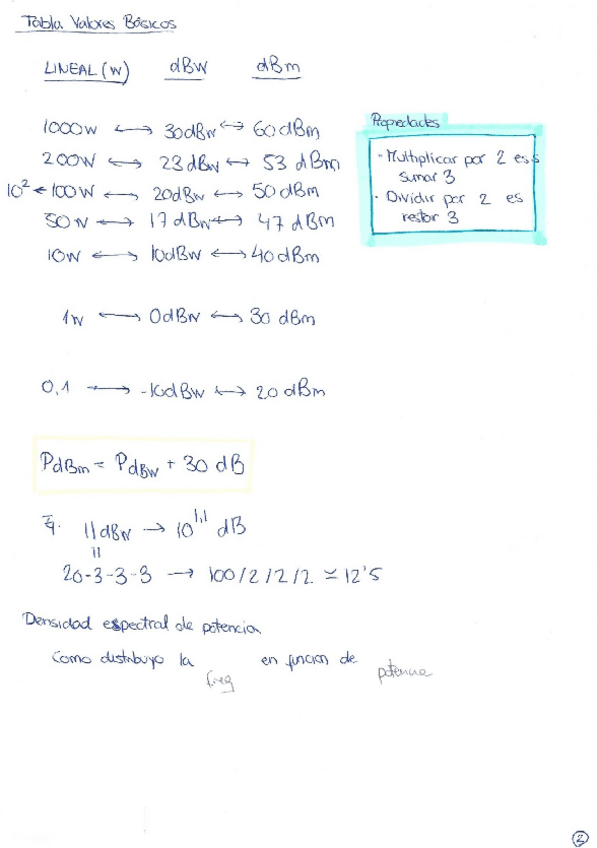 Tabla Valores Básicos
LINEAL (W) dBW dBm
1000W ⟷ 30dBW ⟷ 60dBm
200W ⟷ 23dBW ⟷ 53 dBm
10² ← 100W ⟷ 20dBW ⟷ 50dBm
50W ⟷ 17dBW ⟷ 47 dBm
10W ⟷ 10dBW ⟷ 40dBm
1W ⟷ 0dBW ⟷ 30 dBm
0,1 ⟶ -10dBW ⟷ 20 dBm
Propiedades
· Multiplicar por 2 es
sumar 3
· Dividir por 2 es
restar 3
PdBm = PdBW + 30 dB
Ej. 11dBW → 10^1,1 dB
||
20-3-3-3 → 100/2/2/2 ≃ 12'5
Densidad espectral de potencia.
Como distribuyo la freq en funcion de potencia
2